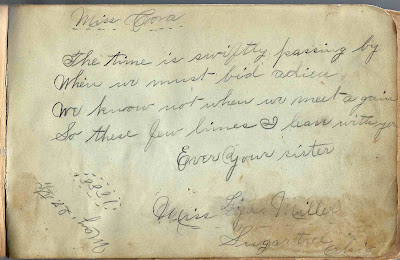 Miss Cora
The time is swiftly passing by
When we must bid adieu
We know not when we meet again
So these few limes I leav with yer
Ever Your sister
Miss Miller
Sugartree
May, 27, 88